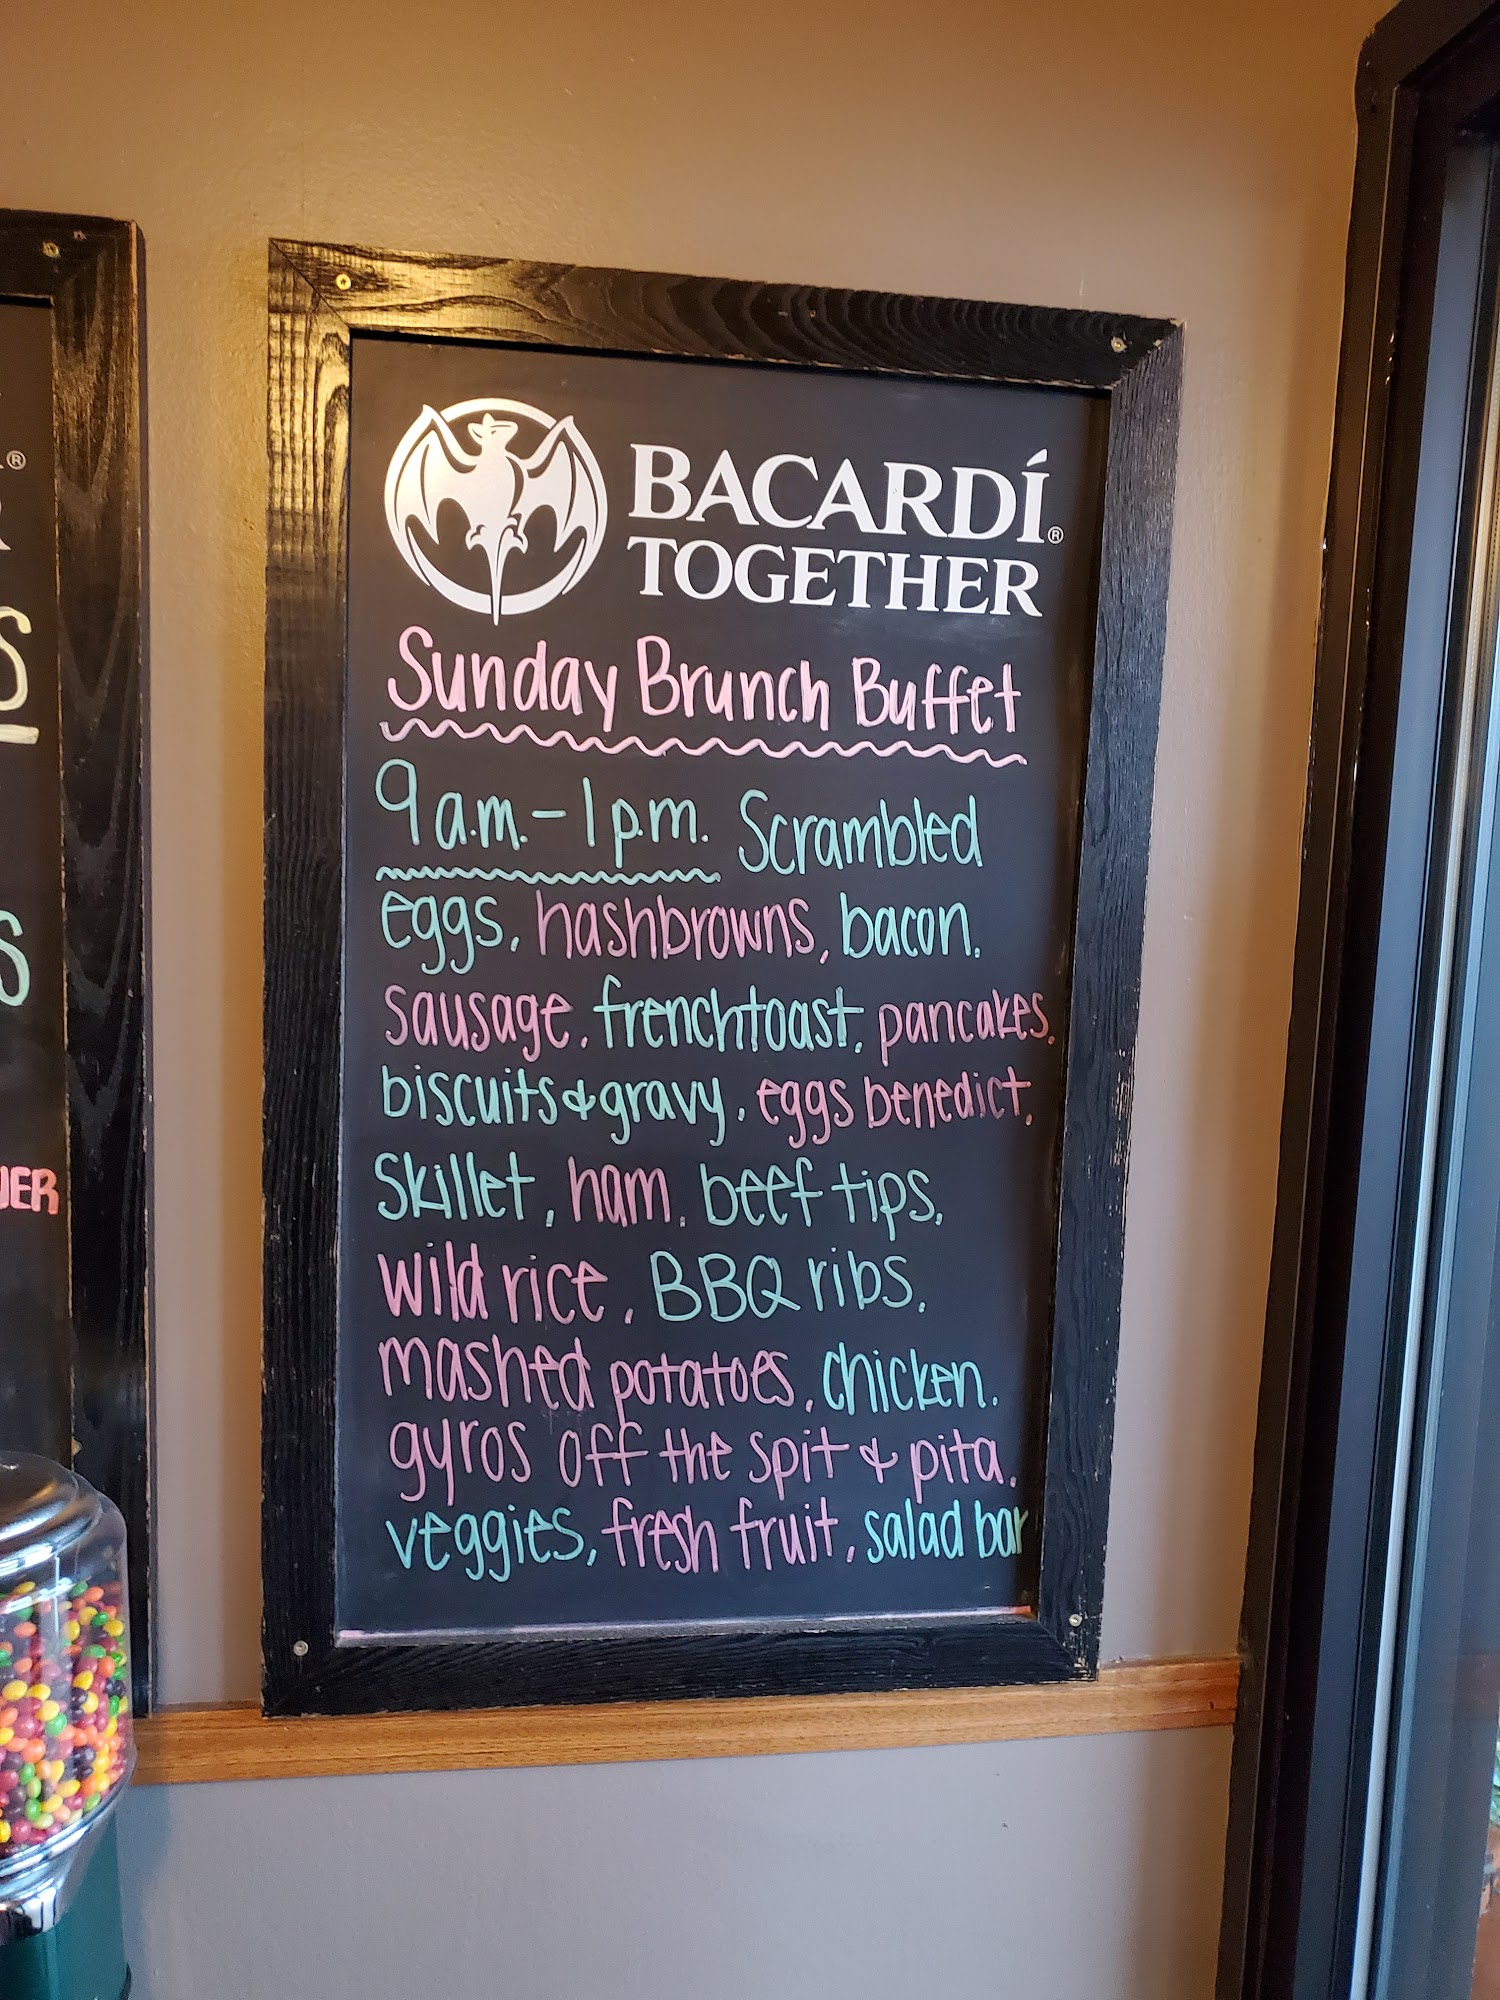 BACARDÍ®
TOGETHER
Sunday Brunch Buffet
9 a.m. - 1 p.m. Scrambled
eggs, hashbrowns, bacon,
sausage, frenchtoast, pancakes,
biscuits & gravy, eggs benedict,
Skillet, ham, beef tips,
wild rice, BBQ ribs,
mashed potatoes, chicken,
gyros off the spit & pita,
veggies, fresh fruit, salad bar